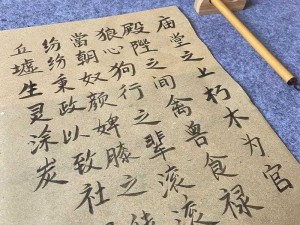 庙堂之上朽木为官
殿陛之间禽兽食禄
狼心狗行之辈滚滚
當朝奴颜婢膝之
纷纷秉政以致社
丘墟生灵涂炭